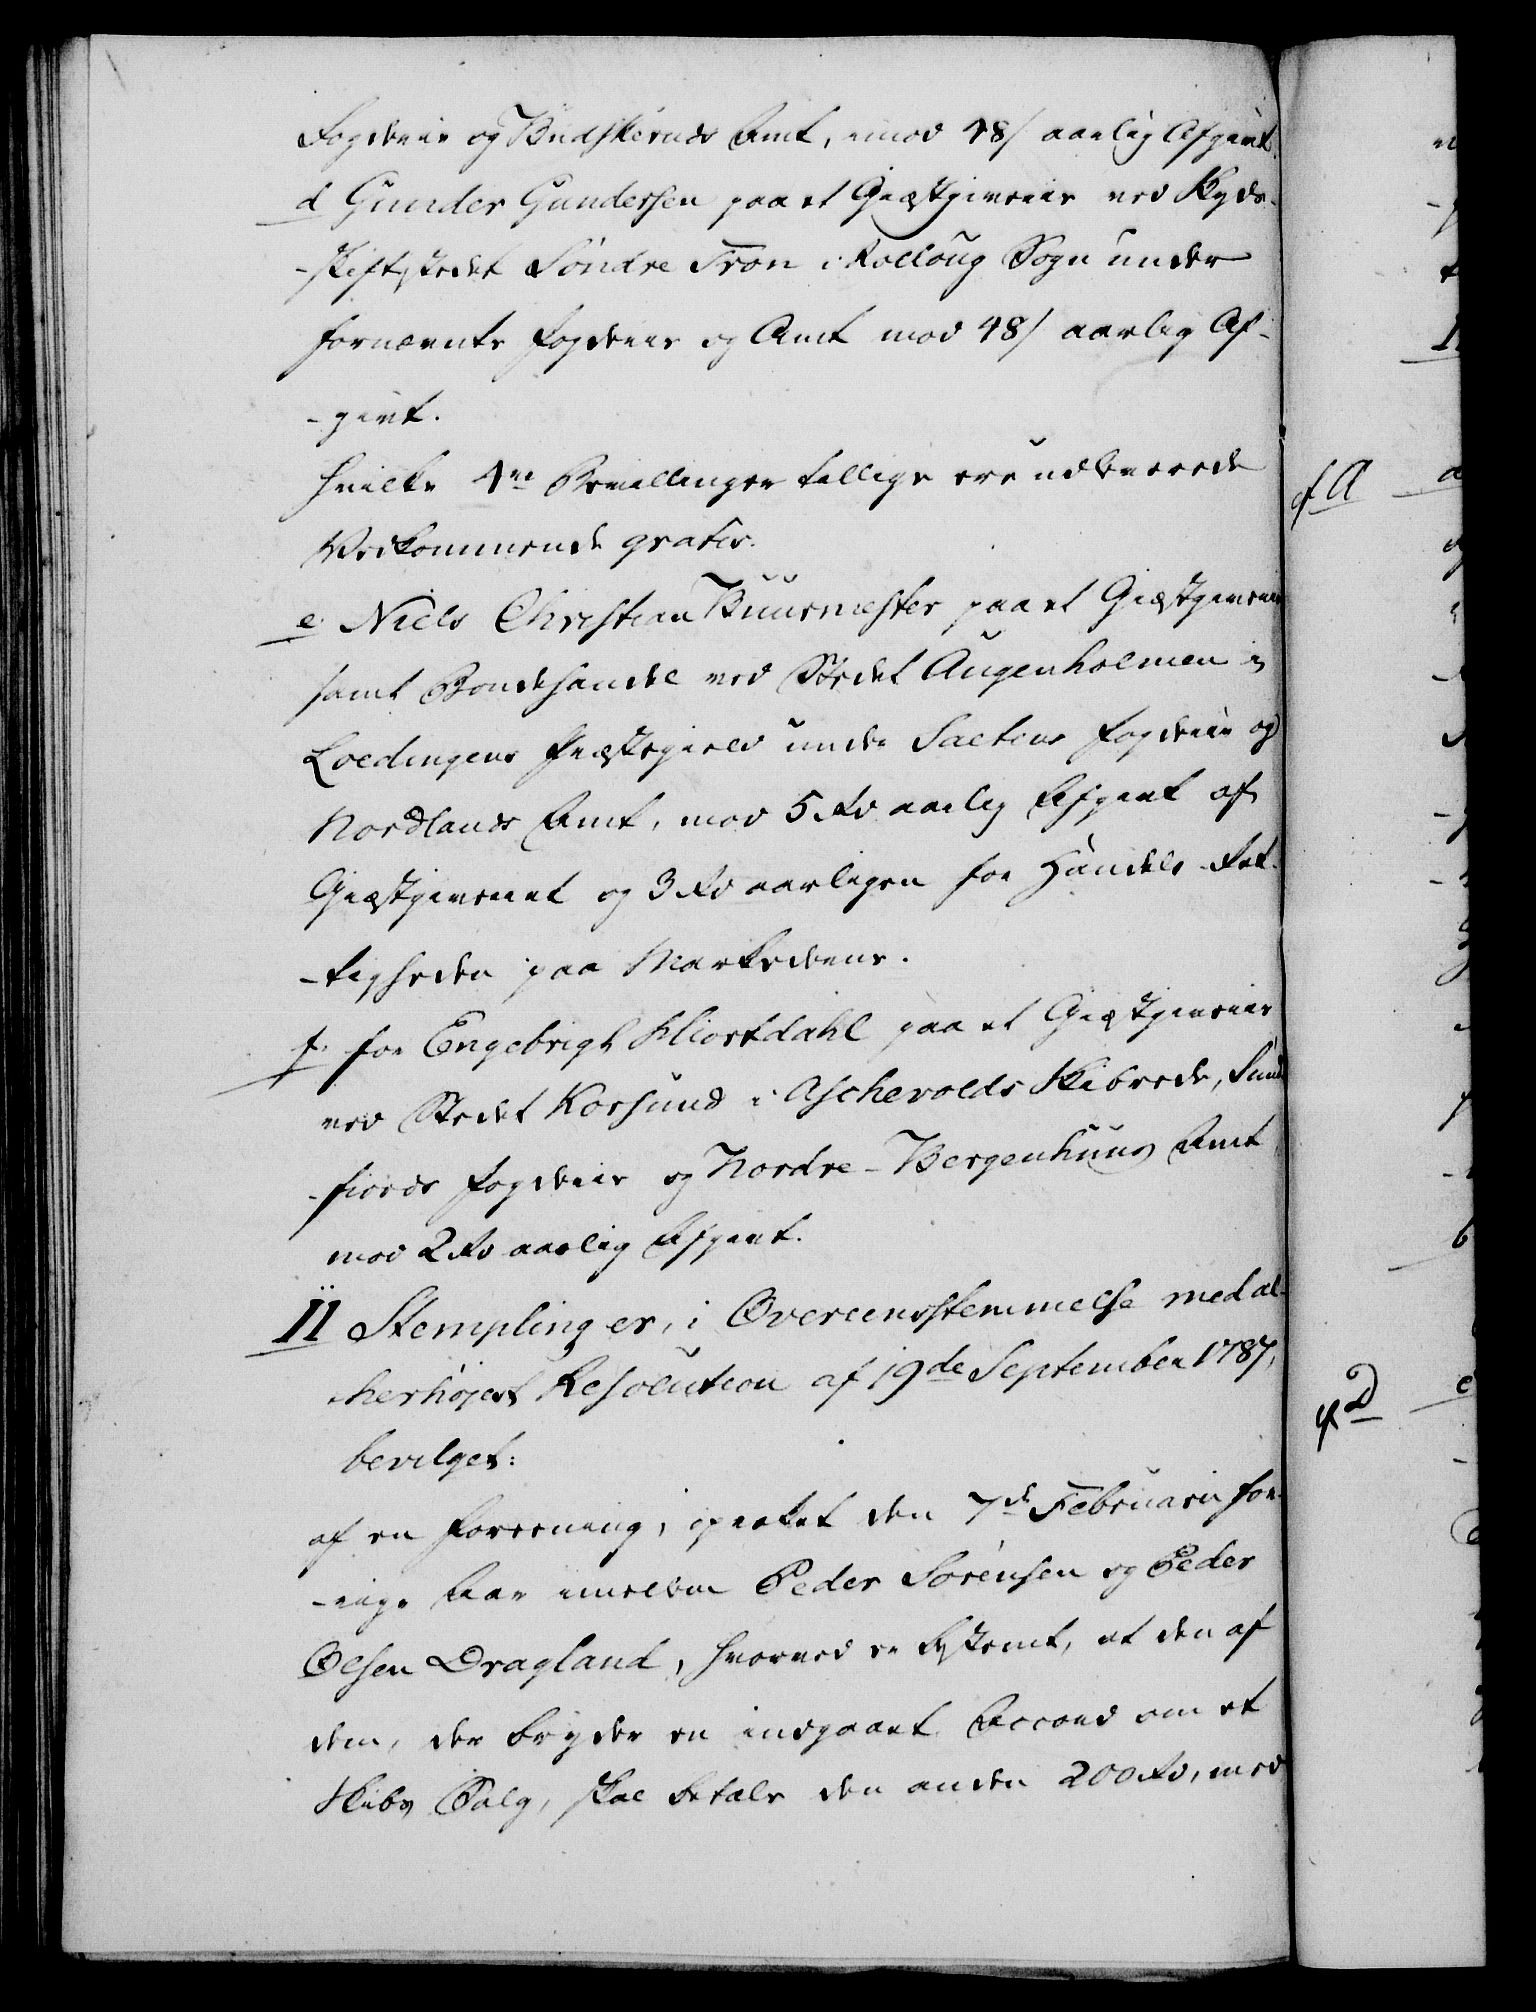 Fogderie og Budskeruds Amt, imod 48/ aarlig Afgivt.
d Gunder Gundersen paa et Giæstgiverie ved Skyds-
-skiftstedet Söndre Fron i Rolloug Sogn under
fornævnte Fogderie og Amt mod 48/ aarlig Af-
-givt.
hvilke 4re Bevillinger tillige ere udleverede
Vedkommende gratis.
e. Niels Christian Buusmester paa et Giæstgiverie
samt Bondehandel ved Stedet Augenholmen i
Loedingens Præstegield under Saltens Fogderie og
Nordlands Amt, mod 5 Rd aarlig Afgivt af
Giæstgiveriet og 3 Rd aarligen for Handels-Ret-
-tigheden paa Markederne.
f. for Engebrigt Hiortdahl paa et Giæstgiverie
ved Stedet Korsund i Aschevolds Skibrede, Sund-
-fiords Fogderie og Nordre-Bergenhuus Amt,
mod 2 Rd aarlig Afgivt.
II Stemplinger, i Overeensstemmelse med al-
-lerhöjest Resolution af 19de September 1787,
bevilget:
af en Foreening, oprettet den 7de Februarii for-
-rige Aar imellem Peder Sörensen og Peder
Olsen Dragland, hvorved er bestemt, at den af
dem, der bryder en indgaaet Accord om et
Skibs Salg, skal betale den anden 200 Rd, med